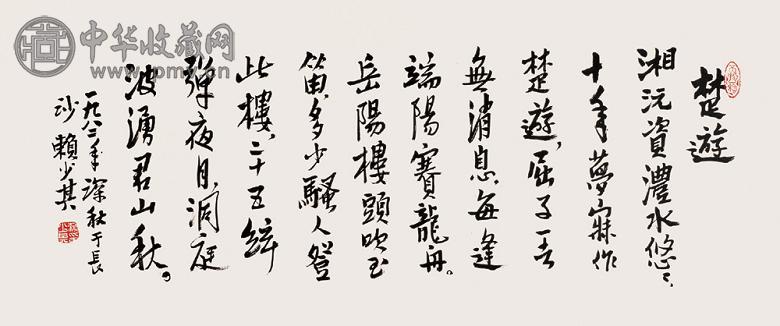 楚遊
湘沅資澧水悠〻、
十年夢寐作
楚遊，屈子一去
無消息，每逢
端陽賽龍舟。
岳陽樓頭吹玉
笛，多少騷人登
此樓，二十五絃
彈夜月，洞庭
波湧君山秋。
一九八二年深秋于長
沙賴少其
中华收藏网